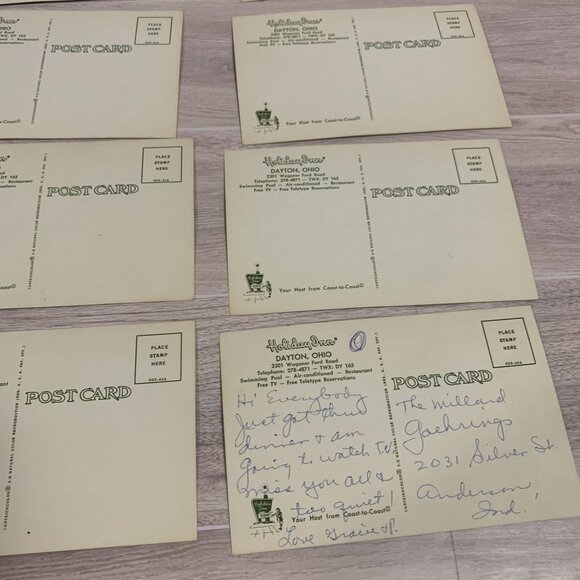 POST CARD
PLACE
STAMP
HERE
Holiday Inn
DAYTON, OHIO
2301 Wagoner Ford Road
Telephone: 278-4871 — TWX: DY 165
Swimming Pool — Air-conditioned — Restaurant
Free TV — Free Teletype Reservations
POST CARD
PLACE
STAMP
HERE
Your Host from Coast-to-Coast
POST CARD
PLACE
STAMP
HERE
Holiday Inn
DAYTON, OHIO
2301 Wagoner Ford Road
Telephone: 278-4871 — TWX: DY 165
Swimming Pool — Air-conditioned — Restaurant
Free TV — Free Teletype Reservations
POST CARD
PLACE
STAMP
HERE
Your Host from Coast-to-Coast
POST CARD
PLACE
STAMP
HERE
Holiday Inn
DAYTON, OHIO
2301 Wagoner Ford Road
Telephone: 278-4871 — TWX: DY 165
Swimming Pool — Air-conditioned — Restaurant
Free TV — Free Teletype Reservations
POST CARD
PLACE
STAMP
HERE
Hi Everybody
Just got thru
dinner & am
going to watch T.V.
miss you all &
too quiet!
Love
Your Host from Coast-to-Coast
The Millard
Goehrings
2031 Silver St.
Anderson,
Ind.